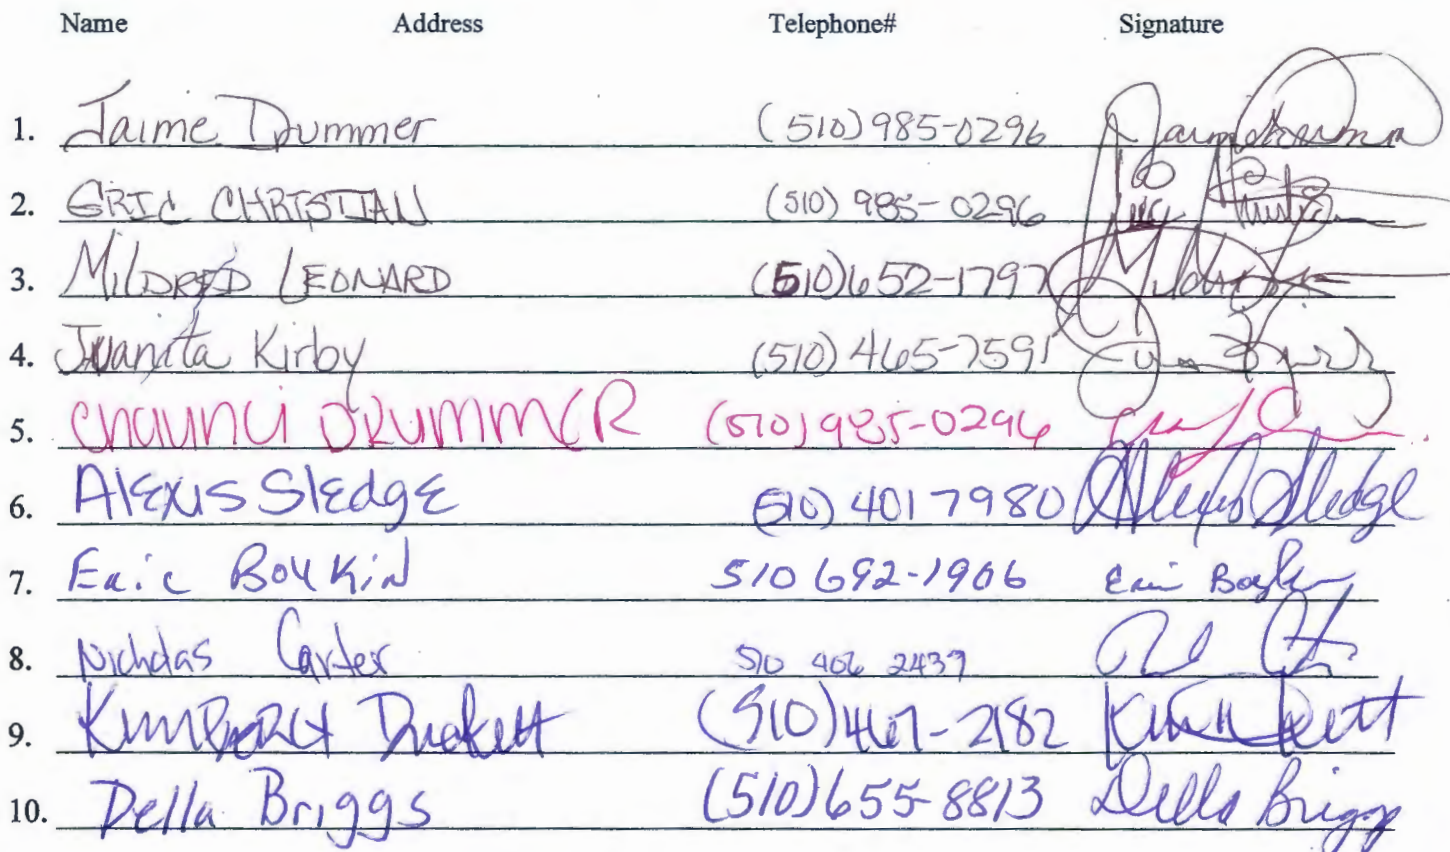 Name Address Telephone# Signature
1. Jaime Drummer (510) 985-0296
2. ERIC CHRISTIAN (510) 985-0296
3. MILDRED LEONARD (510) 652-1797
4. Juanita Kirby (510) 465-7591
5. DRUMMER (510) 985-0296
6. AlExis SlEdgE (510) 401 7980 Alexis Sledge
7. Eric Boykin 510 692-1906 Eric Boykin
8. Nicholas Carter 510 406 2437
9. Duckett (510) 467-2182
10. Della Briggs (510) 655-8813 Della Briggs